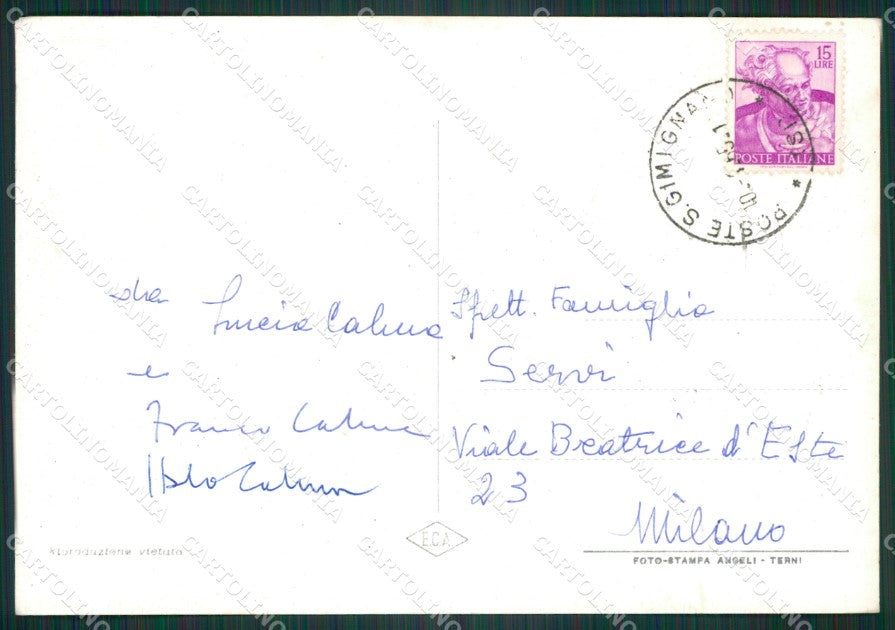 15
LIRE
POSTE ITALIANE
POSTE S.GIMIGNANO
da
Lucia Calma
e
Franco Calma
Calma
Spett. Famiglia
Servi
Viale Beatrice d'Este
23
Milano
E.C.A.
Riproduzione vietata
FOTO-STAMPA ANGELI - TERNI
CARTOLINOMANIA